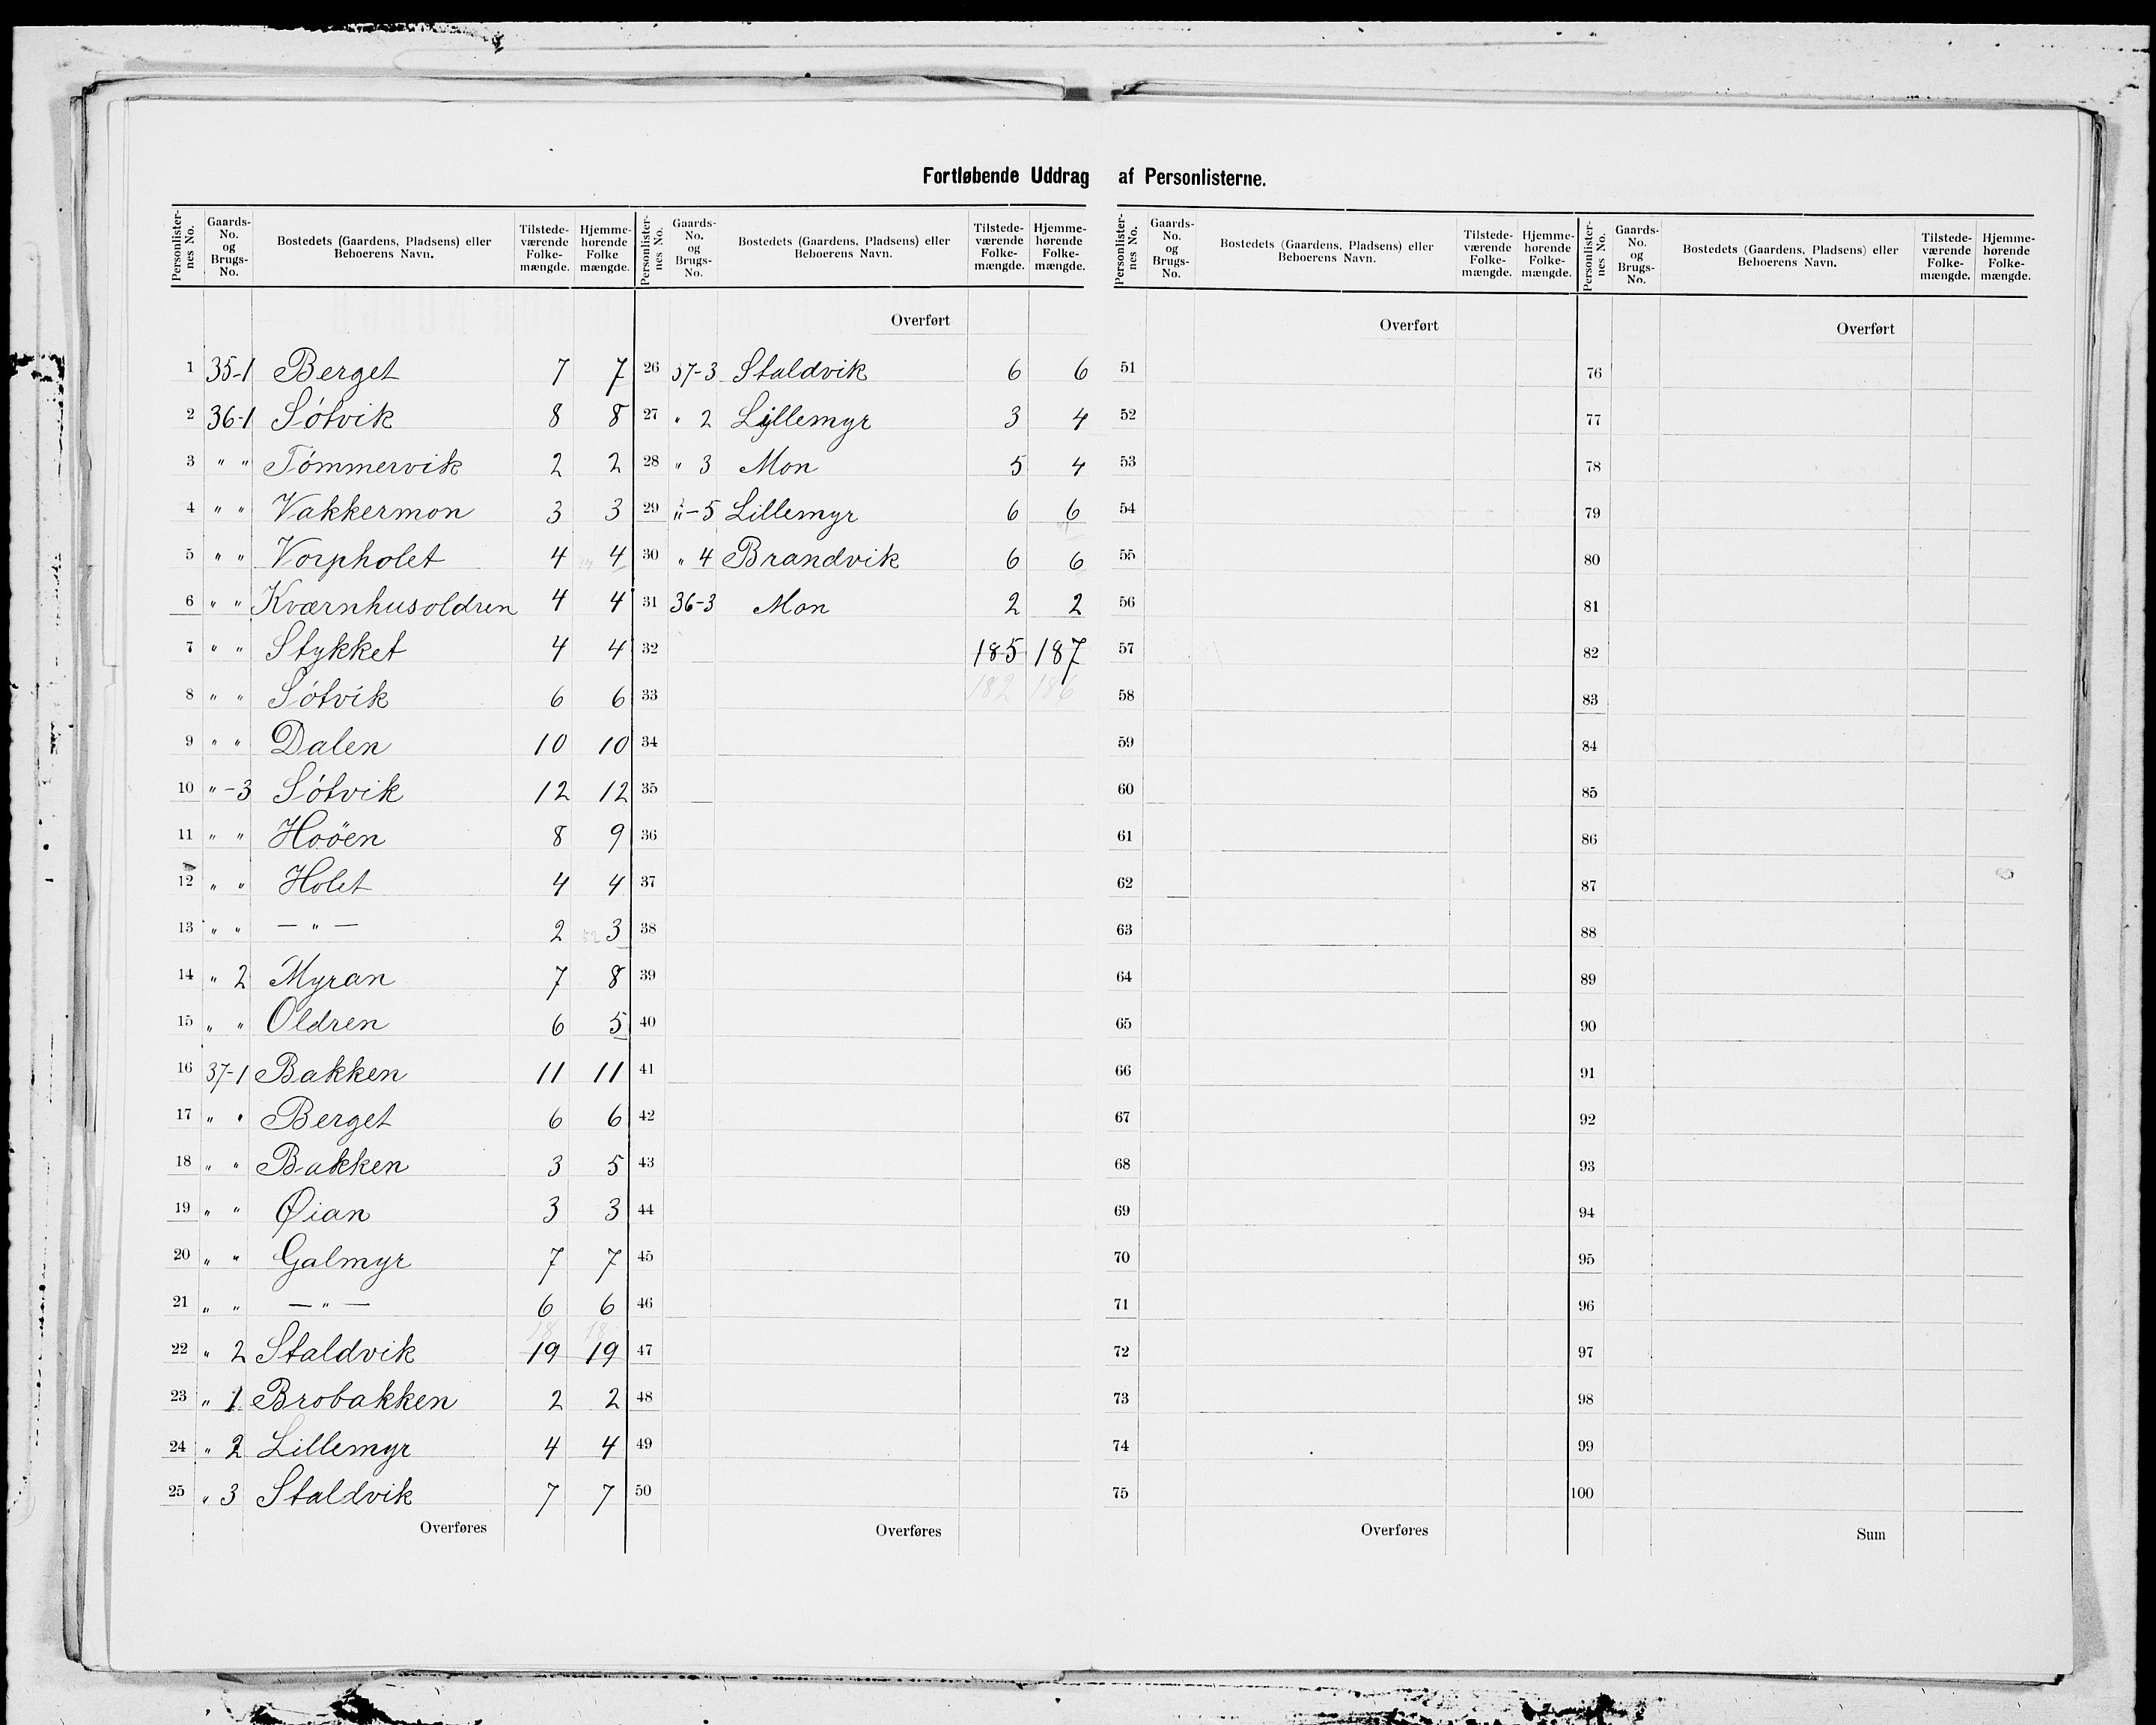 Fortløbende Uddrag af Personlisterne.
Personlister-nes No. | Gaards-No. og Brugs-No. | Bostedets (Gaardens, Pladsens) eller Beboerens Navn. | Tilstede-værende Folke-mængde. | Hjemme-hørende Folke mængde.
1 35-1 Berget 7 7
2 36-1 Sótvik 8 8
3 " " Tómmervik 2 2
4 " " Vakkermon 3 3
5 " " Vorpholet 4 4
6 " " Kværnhusoldren 4 4
7 " " Stykket 4 4
8 " " Sótvik 6 6
9 " " Dalen 10 10
10 " -3 Sótvik 12 12
11 " " Hoöen 8 9
12 " " Holet 4 4
13 " " — " — 2 3
14 " 2 Myran 7 8
15 " " Oldren 6 5
16 37-1 Bakken 11 11
17 " " Berget 6 6
18 " " Bakken 3 5
19 " " Øian 3 3
20 " " Galmyr 7 7
21 " " — " — 6 6
18 18
22 " 2 Staldvik 19 19
23 " 1 Brobakken 2 2
24 " 2 Lillemyr 4 4
25 " 3 Staldvik 7 7
Overføres
Personlister-nes No. | Gaards-No. og Brugs-No. | Bostedets (Gaardens, Pladsens) eller Beboerens Navn. | Tilstede-værende Folke-mængde. | Hjemme-hørende Folke-mængde.
Overført
26 37-3 Staldvik 6 6
27 " 2 Lillemyr 3 4
28 " 3 Mon 5 4
29 " -5 Lillemyr 6 6
30 " 4 Brandvik 6 6
31 36-3 Mon 2 2
32 185 187
33 182 186
34
35
36
37
38
39
40
41
42
43
44
45
46
47
48
49
50
Overføres
Personlister-nes No. | Gaards-No. og Brugs-No. | Bostedets (Gaardens, Pladsens) eller Beboerens Navn. | Tilstede-værende Folke-mængde. | Hjemme-hørende Folke-mængde.
Overført
51
52
53
54
55
56
57
58
59
60
61
62
63
64
65
66
67
68
69
70
71
72
73
74
75
Overføres
Personlister-nes No. | Gaards-No. og Brugs-No. | Bostedets (Gaardens, Pladsens) eller Beboerens Navn. | Tilstede-værende Folke-mængde. | Hjemme-hørende Folke-mængde.
Overført
76
77
78
79
80
81
82
83
84
85
86
87
88
89
90
91
92
93
94
95
96
97
98
99
100
Sum